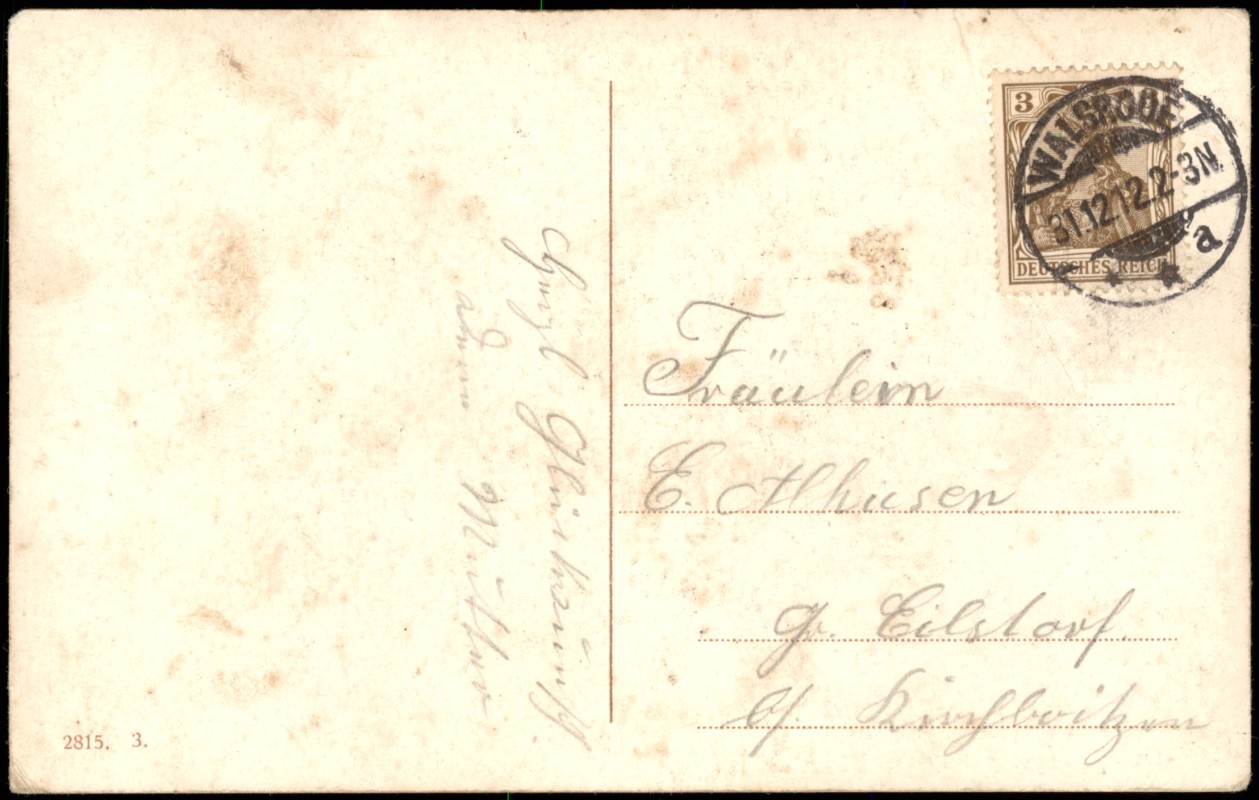 Herzl. Glückwünsche
deine Mutter
3
DEUTSCHES REICH
WALSRODE
31.12.12.2-3N.
a
Fräulein
E. Ahusen
gr. Eilstorf.
b/ Kirchboitzen
2815. 3.